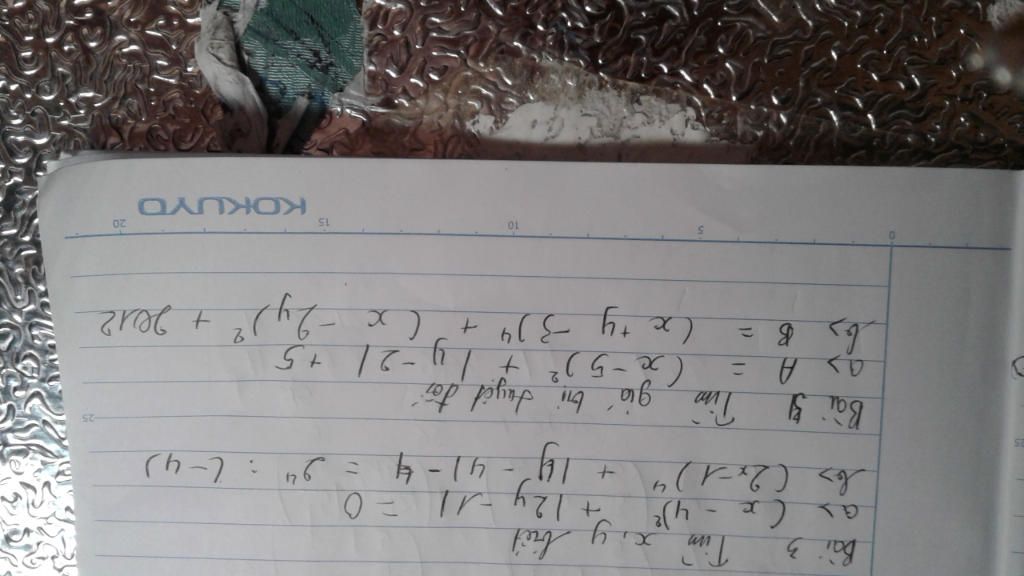 Bài 3 Tìm x, y biết
a> (x - 4)² + |2y - 1| = 0
b> (2x-1)⁴ + |y - 4| - 4 = 2⁴ : (-4)
25
Bài 4 Tìm giá trị tuyệt đối
a> A = (x - 5)² + |y - 2| + 5
b> B = (x + y - 3)⁴ + (x - 2y)² + 2012
0 5 10 15 20
KOKUYO